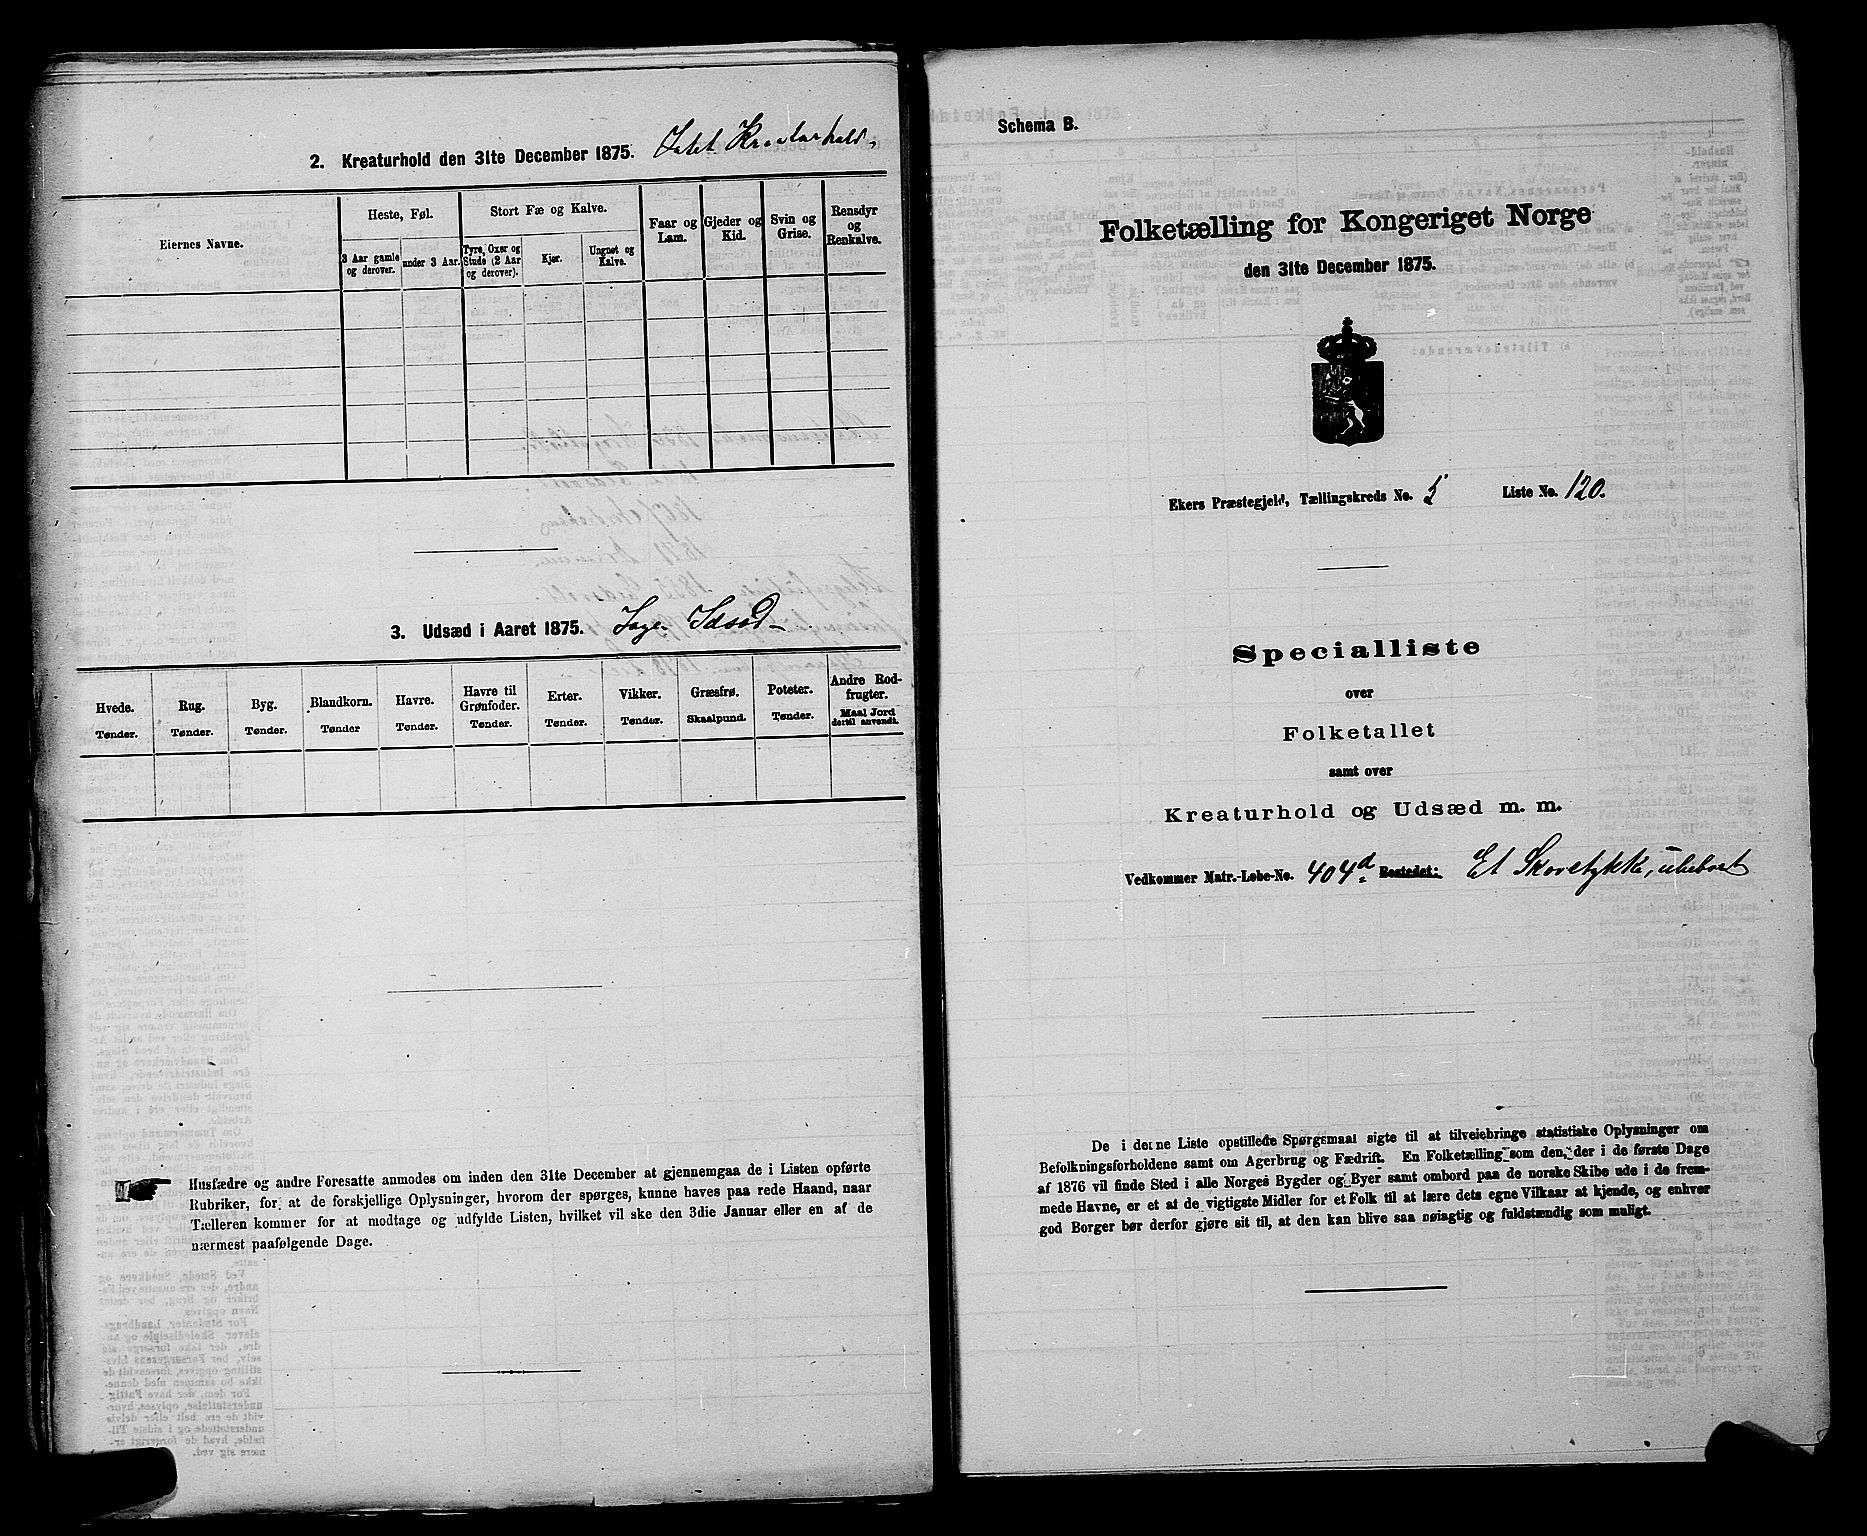 2. Kreaturhold den 31te December 1875. Intet Kreaturhold.
Eiernes Navne.
Heste, Føl.
3 Aar gamle og derover.
under 3 Aar.
Stort Fæ og Kalve.
Tyre, Oxer og Stude (2 Aar og derover).
Kjør.
Ungnøt og Kalve.
Faar og Lam.
Gjeder og Kid.
Svin og Grise.
Rensdyr og Renkalve.
3. Udsæd i Aaret 1875. Ingen Udsæd
Hvede. Tønder.
Rug. Tønder.
Byg. Tønder.
Blandkorn. Tønder
Havre. Tønder.
Havre til Grønfoder. Tønder.
Erter. Tønder.
Vikker. Tønder.
Græsfrø. Skaalpund.
Poteter. Tønder.
Andre Rodfrugter. Maal Jord dertil anvendt.
Husfædre og andre Foresatte anmodes om inden den 31te December at gjennemgaa de i Listen opførte
Rubriker, for at de forskjellige Oplysninger, hvorom der spørges, kunne haves paa rede Haand, naar
Tælleren kommer for at modtage og udfylde Listen, hvilket vil ske den 3die Januar eller en af de
nærmest paafølgende Dage.
Schema B.
Folketælling for Kongeriget Norge
den 31te December 1875.
Ekers Præstegjeld, Tællingskreds No. 5 Liste No. 120.
Specialliste
over
Folketallet
samt over
Kreaturhold og Udsæd m. m.
Vedkommer Matr.-Løbe-No. 404d Bostedet: Et Skovstykke, ubeboet
De i denne Liste opstillede Spørgsmaal sigte til at tilveiebringe statistiske Oplysninger om
Befolkningsforholdene samt om Agerbrug og Fædrift. En Folketælling som den, der i de første Dage
af 1876 vil finde Sted i alle Norges Bygder og Byer samt ombord paa de norske Skibe ude i de frem-
mede Havne, er et af de vigtigste Midler for et Folk til at lære dets egne Vilkaar at kjende, og enhver
god Borger bør derfor gjøre sit til, at den kan blive saa nøiagtig og fuldstændig som muligt.